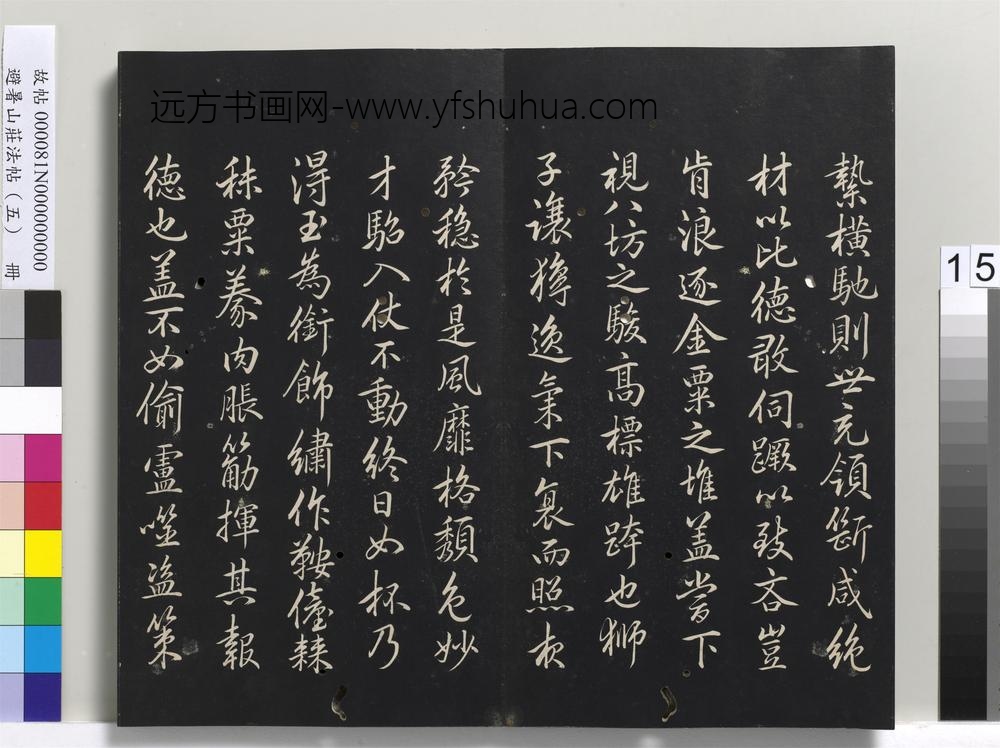 縶橫馳則世充領斷咸絶
材以比德敢伺蹶以致吝豈
肯浪逐金粟之堆盖當下
視八坊之駿髙標雄跨也獅
子讓獰逸氣下裊而照夜
矜穏於是風靡格頽色妙
才駘入仗不動終日如杯乃
淂玉為銜飾繡作鞍儓棘
秣粟豢肉脹筋揮其報
徳也盖不如偷盧噬盗策
远方书画网-www.yfshuhua.com
故帖 000081N000000000
避暑山莊法帖（五） 冊
15